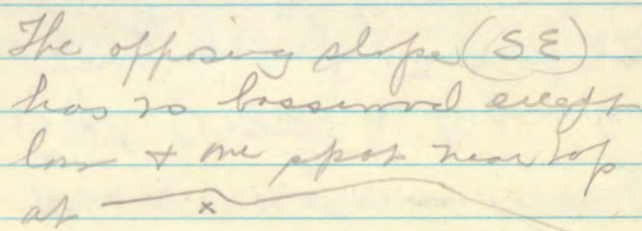 The opposing slope (SE)
has no basswood except
low + one spot near top
at x